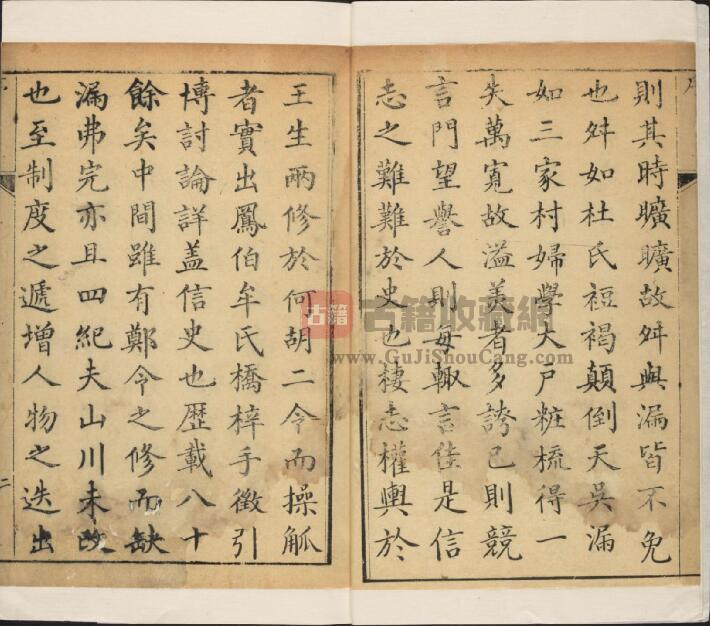 則其時曠曠故舛與漏皆不免
也舛如杜氏裋褐顛倒天吳漏
如三家村婦學大戶粧梳得一
失萬寬故溢美者多誇己則競
言門望譽人則每輙言佳是信
志之難難於史也棲志權輿於
王生兩修於何胡二令而操觚
者實出鳳伯牟氏橋梓手徵引
博討論詳盖信史也歷載八十
餘矣中間雖有鄭令之修而缺
漏弗完亦且四紀夫山川未改
也至制度之遞增人物之迭出
二
古籍
古籍收藏網
www.GuJiShouCang.com